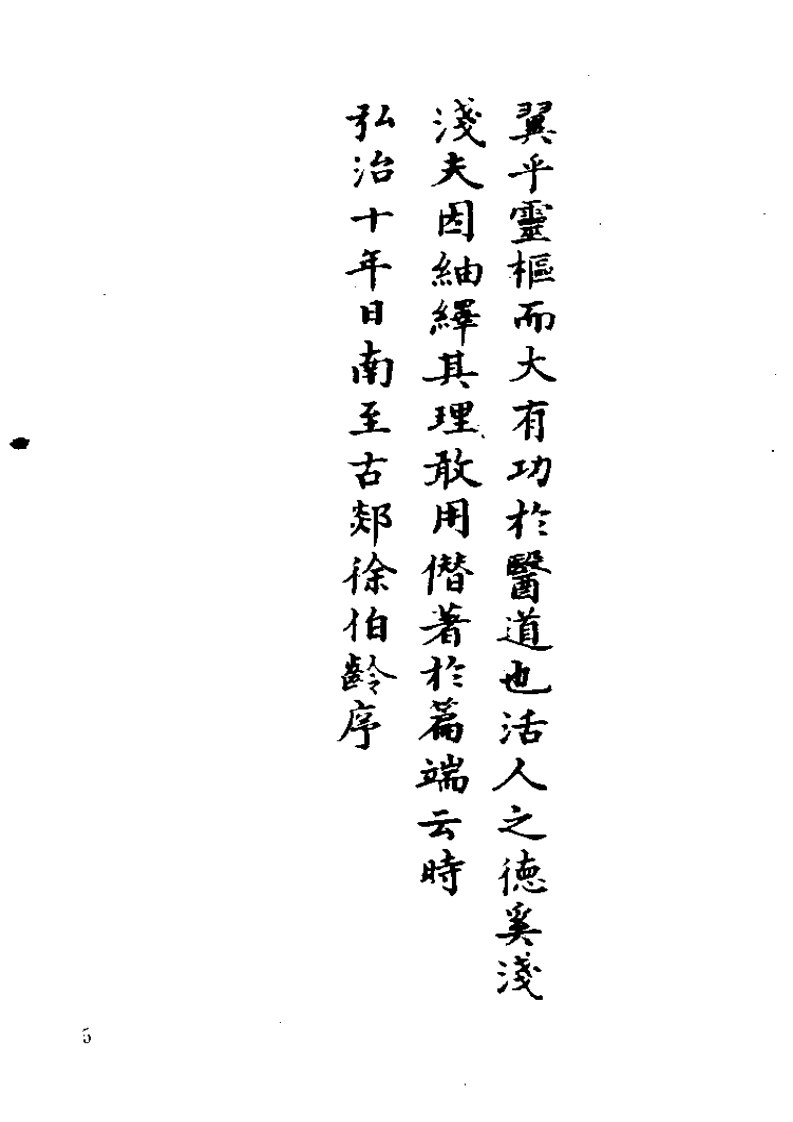 翼乎靈樞而大有功於醫道也活人之德奚淺
淺夫因紬繹其理敢用僭著於篇端云時
弘治十年日南至古郯徐伯齡序
5